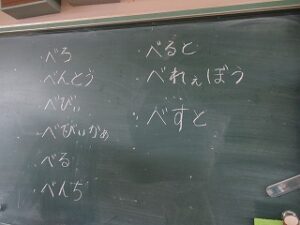 ・べろ
・べんとう
・べびぃ
・べびぃかぁ
・べる
・べんち
・べると
・べれぇぼう
・べすと